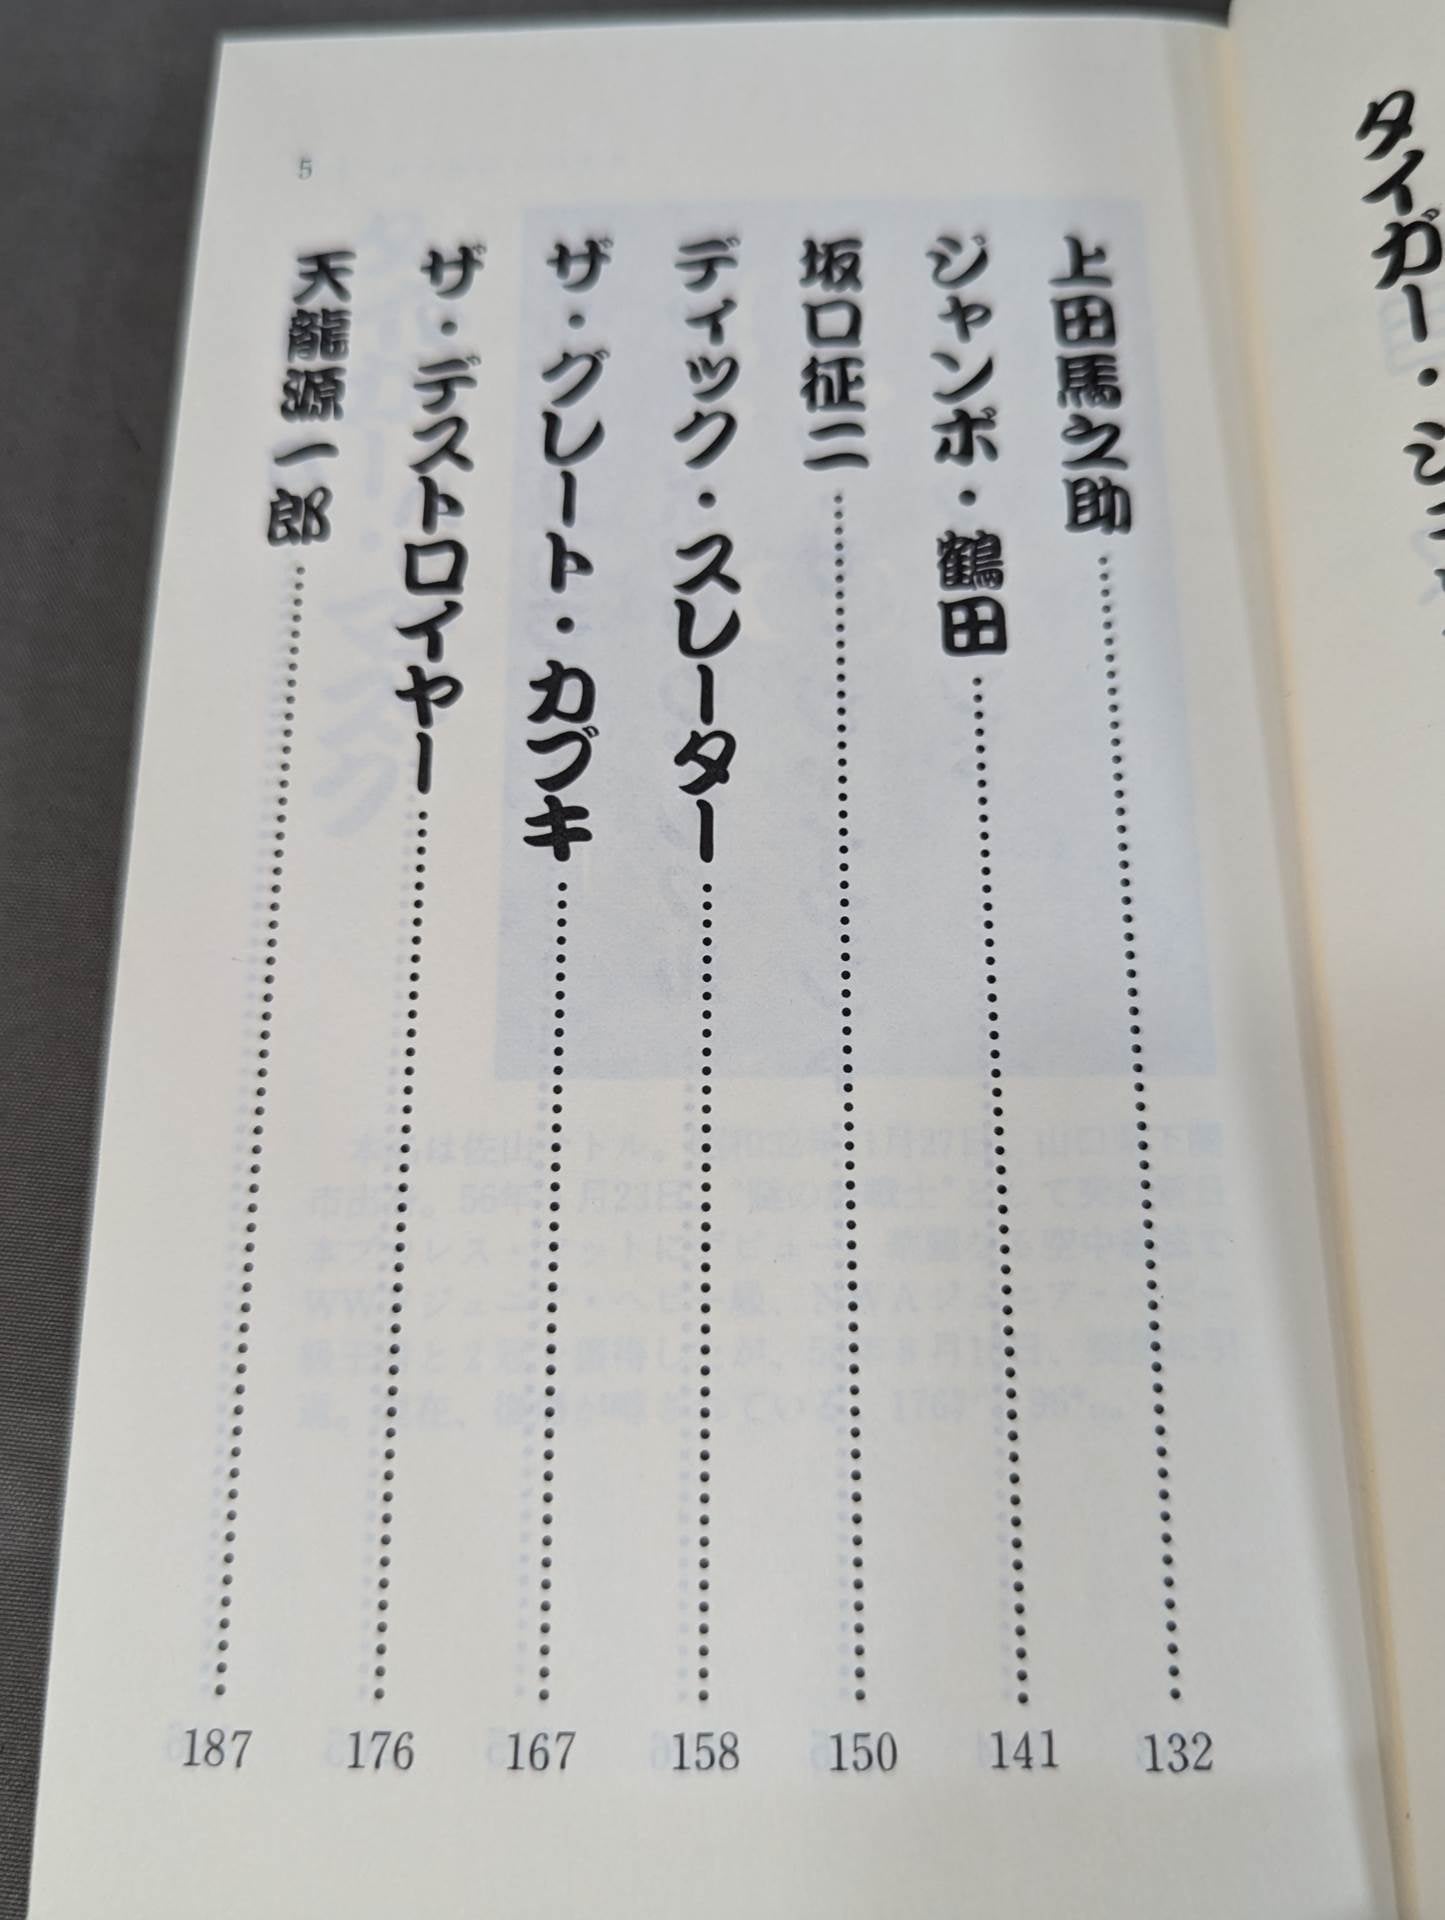 タイガー・ジェ
上田馬之助……132
ジャンボ・鶴田……141
坂口征二……150
ディック・スレーター……158
ザ・グレート・カブキ……167
ザ・デストロイヤー……176
天龍源一郎……187
5